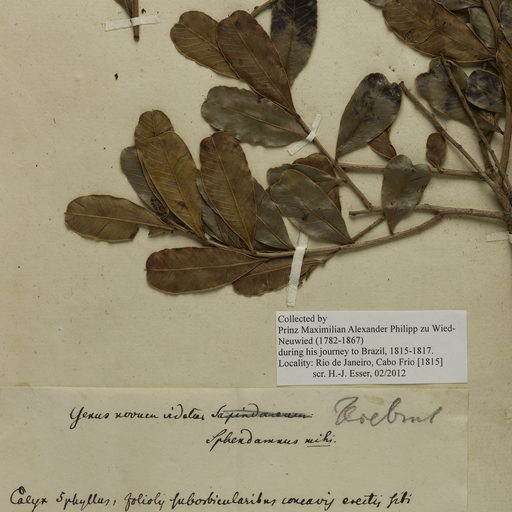 Collected by
Prinz Maximilian Alexander Philipp zu Wied-
Neuwied (1782-1867)
during his journey to Brazil, 1815-1817.
Locality: Rio de Janeiro, Cabo Frio [1815]
scr. H.-J. Esser, 02/2012
Genus novum videtur
Sphendamnus mihi.
Calyx 5phyllus, foliolis suborbicularibus concavis erectis sibi